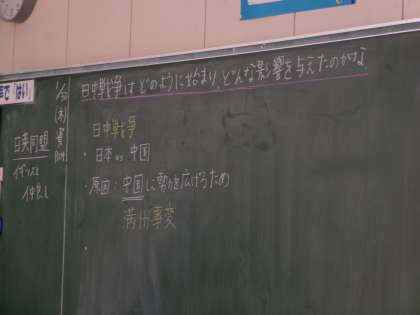 日中戦争はどのように始まり、どんな影響を与えたのかな
日中戦争
・日本 vs 中国
・原因：中国に勢力を広げるため
満州事変
・
日英同盟
イギリスと
仲良し